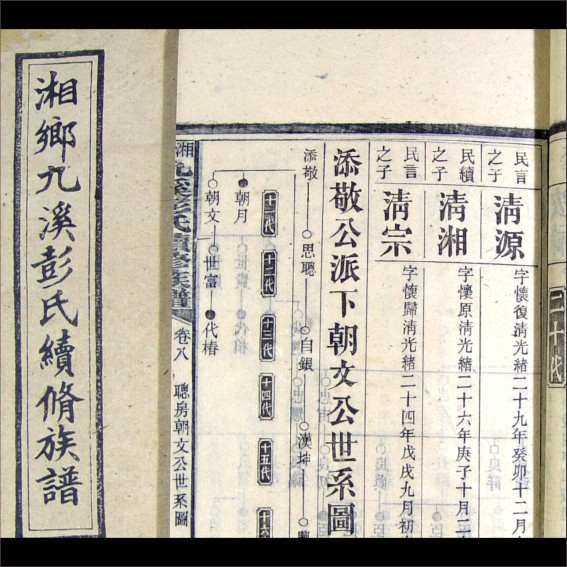 湘鄉九溪彭氏續脩族譜
民言
之子
清源
字懷復清光緒二十九年癸卯十二月
民續
之子
清湘
字懷原清光緒二十六年庚子十月二
民言
之子
清宗
字懷歸清光緒二十四年戊戌九月初
添敬公派下朝文公世系圖
添敬
思聰
白銀
漢坤
十一代
十二代
十三代
十四代
十五代
朝月
朝文
世富
代椿
湘鄉九溪彭氏續修族譜
卷八
聰房朝文公世系圖
三十代